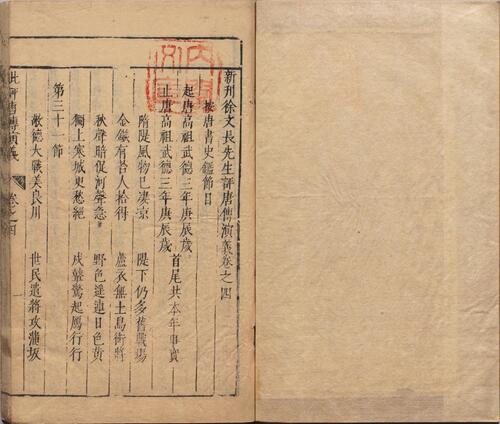 新刊徐文長先生評唐傳演義卷之四
按唐書史鑑節目
起唐高祖武德三年庚辰歲
止唐高祖武德三年庚辰歲
首尾共本年事實
隋隄風物已凄凉 隄下仍多舊戰場
金鏃有苔人拾得 蘆衣無土鳥銜將
秋聲暗促河聲急 野色遥連日色黄
獨上寒城更愁絕 戍鼙驚起鴈行行
第三十一節
敬德大戰美良川 世民遣將攻蒲坂
批評唐傳演義 卷之四
内閣